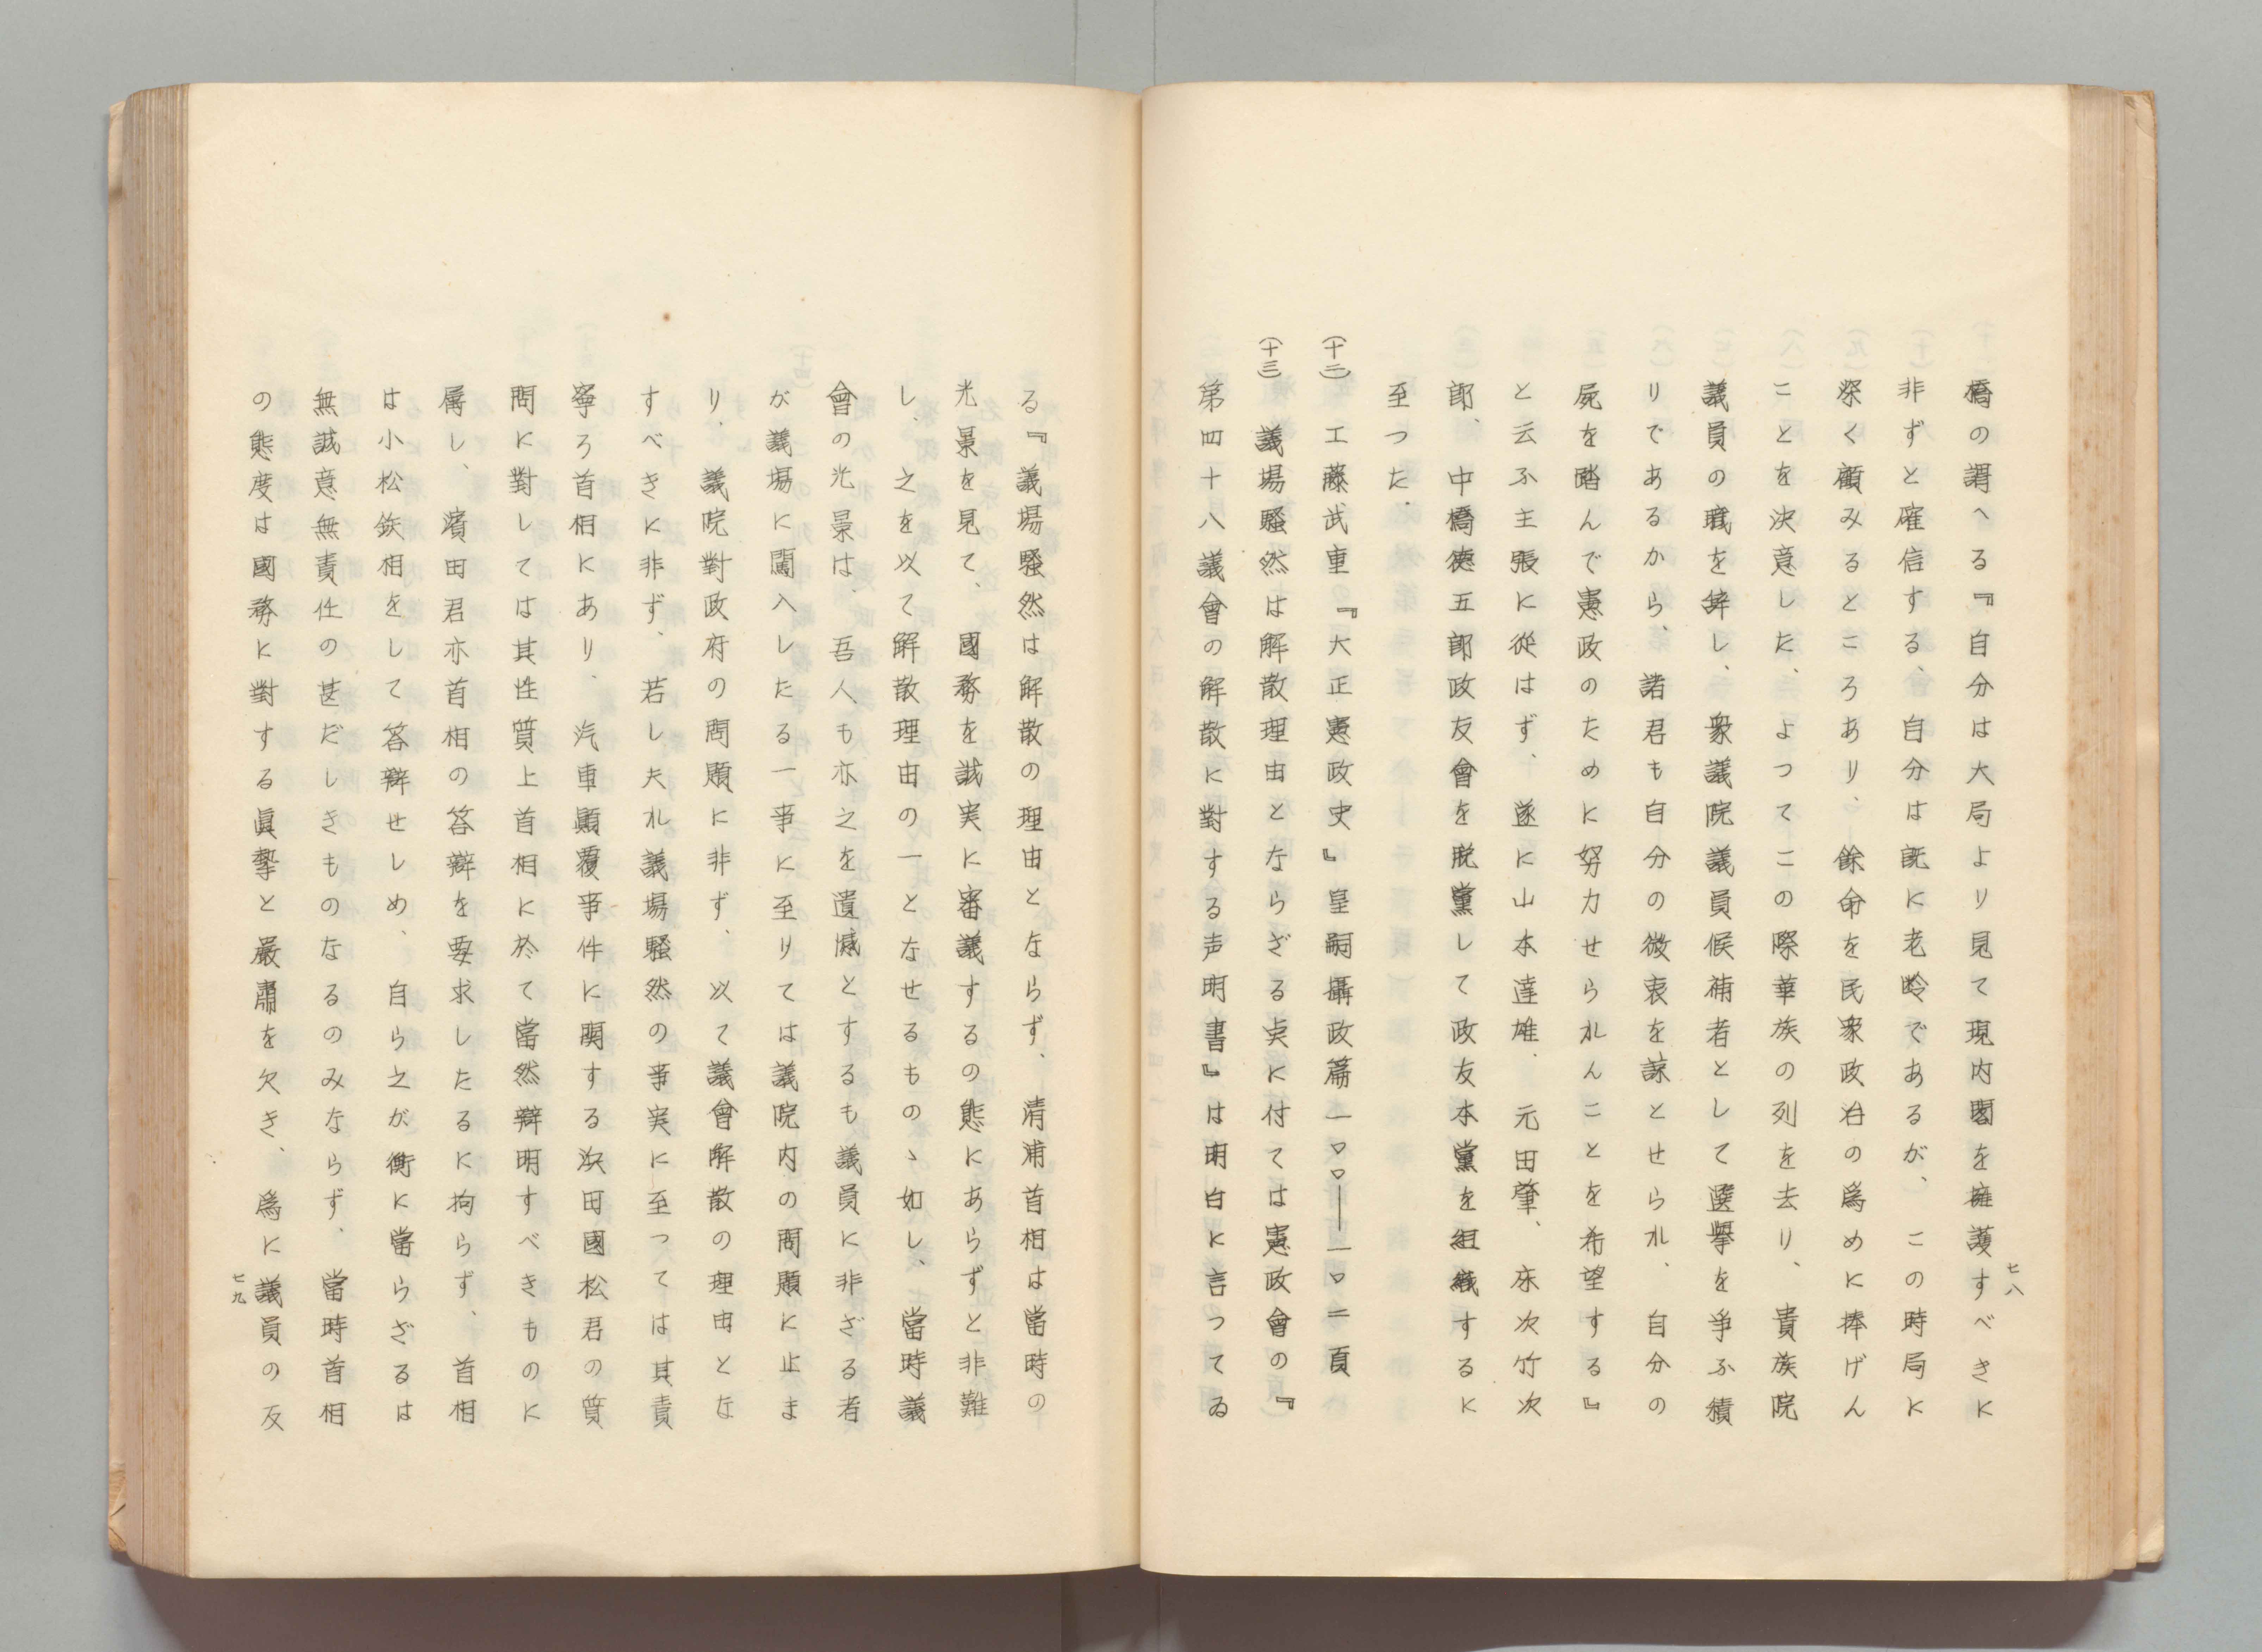 橋の謂へる『自分は大局より見て現内閣を擁護すべきに
非ずと確信する、自分は既に老齢であるが、この時局に
深く顧みるところあり、餘命を民衆政治の爲めに捧げん
ことを決意した、よつてこの際華族の列を去り、貴族院
議員の職を辞し、衆議院議員候補者として選擧を争ふ積
りであるから、諸君も自分の微衷を諒とせられ、自分の
屍を踏んで憲政のために努力せられんことを希望する』
と云ふ主張に從はず、遂に山本達雄、元田肇、床次竹次
郎、中橋徳五郎政友會を脱黨して政友本黨を組織するに
至つた.
(十二)工藤武重『大正憲政史』皇嗣攝政篇一〇〇——一〇二頁
(十三)議場騒然は解散理由とならざる点に付ては憲政會の『
第四十八議會の解散に對する声明書』は明白に言つてゐ
七八
る『議場騒然は解散の理由とならず、清浦首相は當時の
光景を見て、國務を誠実に審議するの態にあらずと非難
し、之を以て解散理由の一となせるものゝ如し、當時議
會の光景は、吾人も亦之を遺憾とするも議員に非ざる者
が議場に闖入したる一亊に至りては議院内の問題に止ま
り、議院對政府の問題に非ず、以て議會解散の理由とな
すべきに非ず、若し夫れ議場騒然の亊実に至つては其責
寧ろ首相にあり、汽車顚覆亊件に関する浜田國松君の質
問に對しては其性質上首相に於て當然辯明すべきものに
属し、濱田君亦首相の答辯を要求したるに拘らず、首相
は小松鉄相をして答辯せしめ、自ら之が衝に當らざるは
無誠意無責任の甚だしきものなるのみならず、當時首相
の態度は國務に對する眞摯と嚴肅を欠き、爲に議員の反
七九